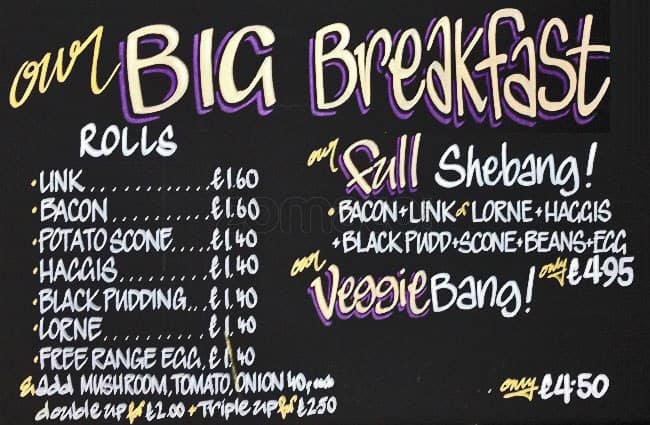 our BIG Breakfast
ROLLS
• LINK............£1.60
• BACON...........£1.60
• POTATO SCONE.....£1.40
• HAGGIS..........£1.40
• BLACK PUDDING...£1.40
• LORNE...........£1.40
• FREE RANGE EGG.£1.40
& add MUSHROOM, TOMATO, ONION 40p
double up for £2.00 + Triple up for £2.50
our Full Shebang!
• BACON + LINK or LORNE + HAGGIS
+ BLACK PUDD + SCONE + BEANS + EGG
only £4.95
our Veggie Bang!
only £4.50